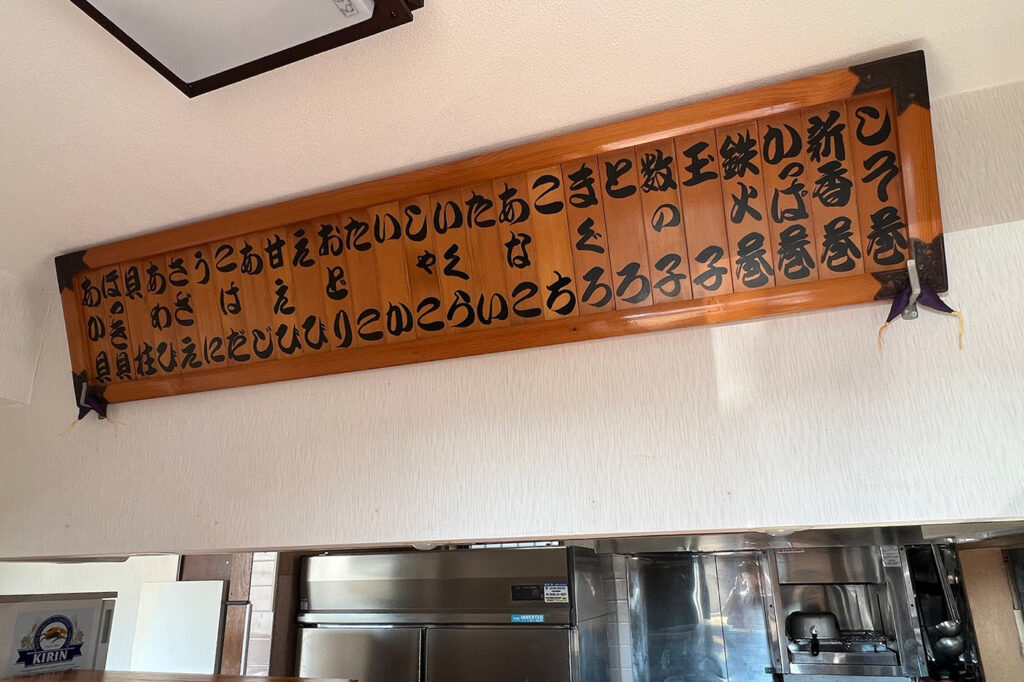 しそ巻
新香巻
かっぱ巻
鉄火巻
玉子
数の子
とろ
まぐろ
こち
あなこ
たい
いくら
しゃこ
いか
たこ
おどり
えび
甘えび
あじ
こはだ
うに
さざえ
あわび
貝柱
ほっき貝
あか貝
KIRIN
INVERTER